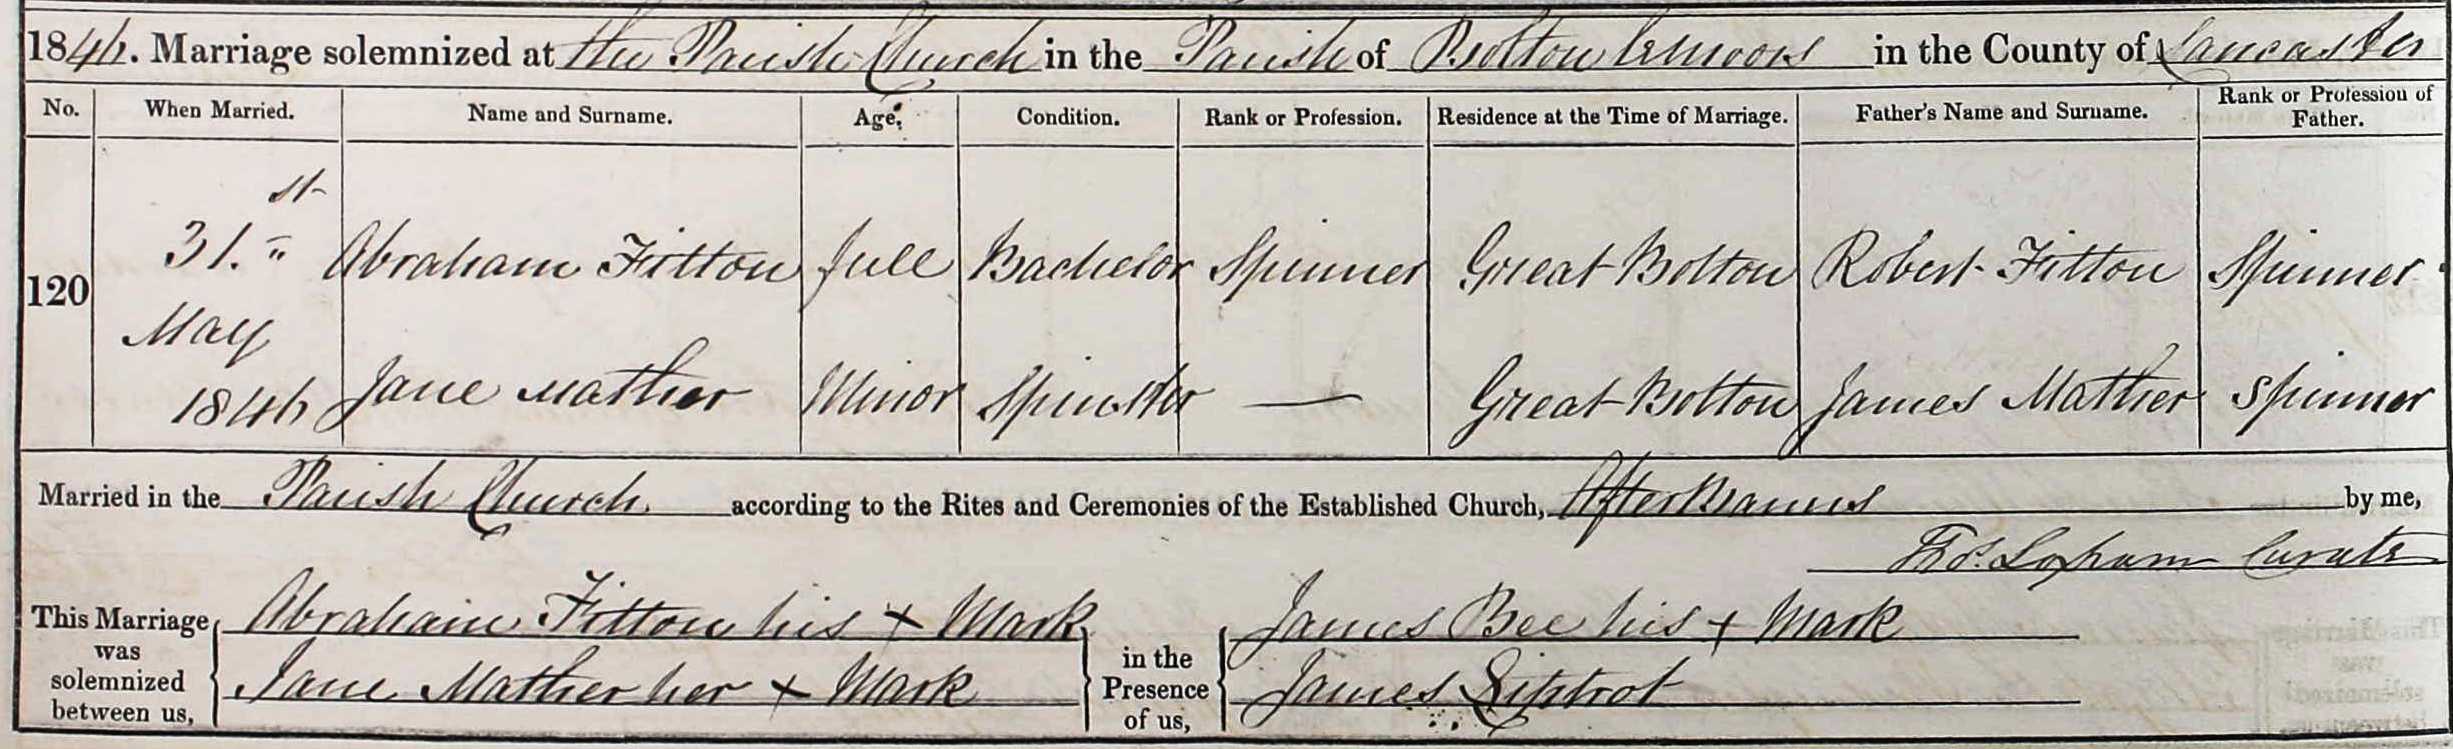 1846. Marriage solemnized at the Parish Church in the Parish of Bolton le Moors in the County of Lancaster
No. When Married. Name and Surname. Age. Condition. Rank or Profession. Residence at the Time of Marriage. Father's Name and Surname. Rank or Profession of Father.
120 31.st May 1846 Abraham Fitton full Bachelor Spinner Great Bolton Robert Fitton Spinner
Jane Mather Minor Spinster — Great Bolton James Mather Spinner
Married in the Parish Church. according to the Rites and Ceremonies of the Established Church, After Banns by me,
Thos. Loxham Curate
This Marriage was solemnized between us, Abraham Fitton his x Mark
Jane Mather her x Mark
in the Presence of us, James Bee his x Mark
James Liptrot